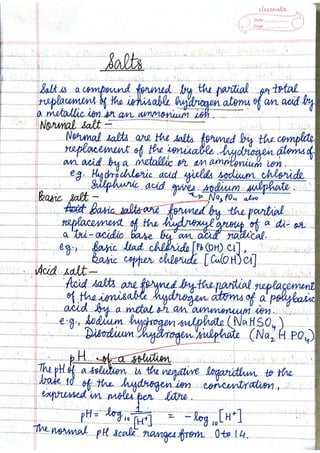 classmate
Date
Page
Salts
Salt is a compound formed by the partial or total
replacement of the ionisable hydrogen atoms of an acid by
a metallic ion or an ammonium ion.
Normal salt –
Normal salts are the salts formed by the complete
replacement of the ionisable hydrogen atoms of
an acid by a metallic or an ammonium ion.
eg. Hydrochloric acid yields sodium chloride
Sulphuric acid gives sodium sulphate.
Basic salt – → Na3PO4 also
Acid Basic salts are formed by the partial
replacement of the hydroxyl group of a di- or
a tri-acidic base by an acid radical.
eg., Basic lead chloride [Pb(OH)Cl],
Basic copper chloride [Cu(OH)Cl]
Acid salt –
Acid salts are formed by the partial replacement
of the ionisable hydrogen atoms of a polybasic
acid by a metal or an ammonium ion.
e.g., Sodium hydrogen sulphate (NaHSO4)
Disodium hydrogen sulphate (Na2HPO4)
pH of a solution
The pH of a solution is the negative logarithm to the
base 10 of the hydrogen ion concentration,
expressed in moles per litre.
pH = log10 1/[H+] = -log10 [H+]
The normal pH scale ranges from 0 to 14.